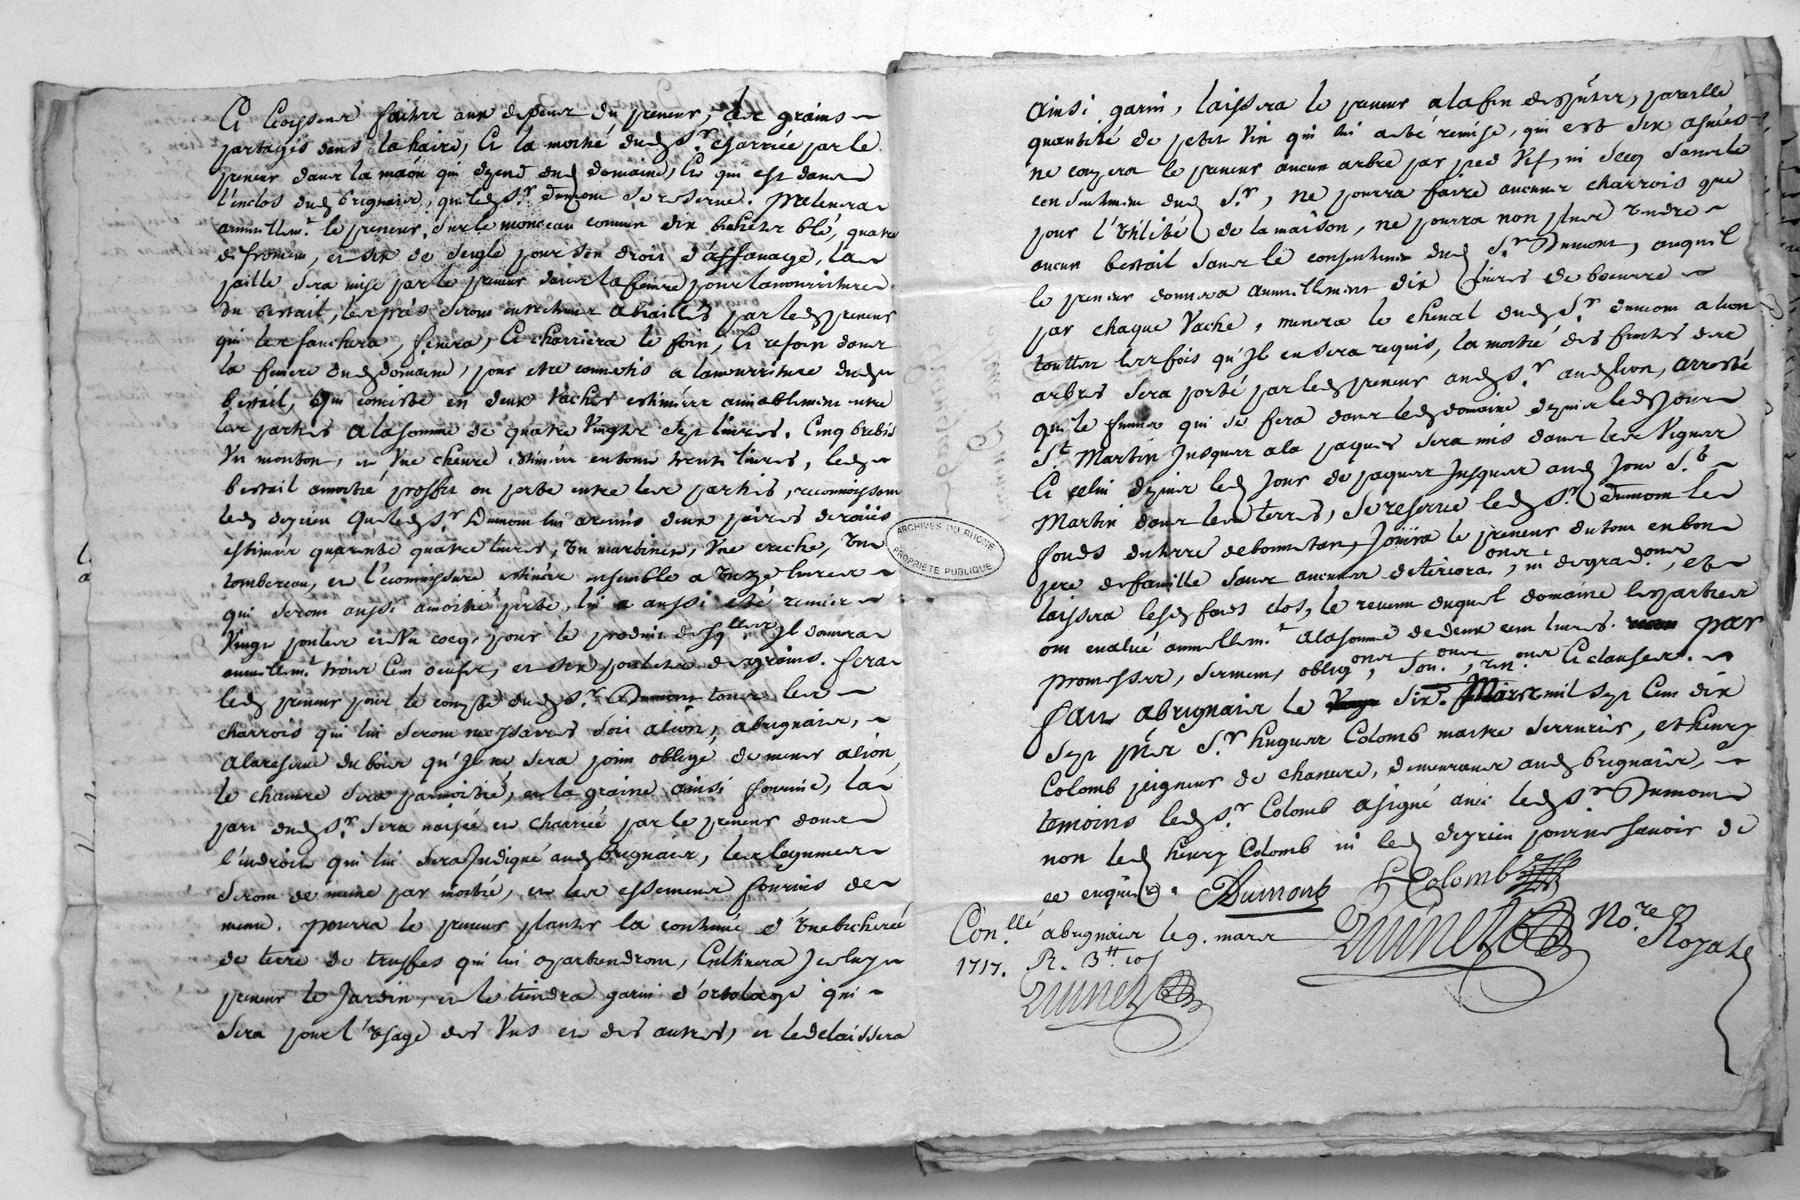 Et moissons faittes aux depens du preneur, les grains
partagés dans la haire, Et la moitié dud. Sr. charriée par le
preneur dans la maōn qui depend dud. domaine, Et qui est dans
l'enclos dud. brignaix, que led. Sr. Dumont se reserve. prelevera
annuellemt. le preneur, sur le monceau commun dix bichets blé, quatre
de froment, et six de seigle pour son droit d'affanage, la
paille sera mise par le preneur dans la feniere pour la nourriture
du bestail, les prés seront entretenus abiaillés par led. preneur
qui les fauchera, fenera, Et charriera le foin, Et refoin dans
la feniere dud. domaine, pour etre convertis a la nourriture dud.
bestail, Qui consiste en deux vaches estimées amiablement entre
les parties a la somme de quatre vingts sept livres. Cinq brebis
Un mouton, et Une chevre estimés entout trente livres, led.
bestail a moitié proffit ou perte entre les parties, reconnoissant
led. deyrieu que led. Sr. Dumont lui a remis deux paires de roües
estimées quarante quatre livres, un
tombereau, et l'
qui seront aussi a moitié perte, lui a aussi eté remis
Vingt poules et Un cocq, pour le produit desqlles Il donnera
annuellemt. trois Cent oeufs, et six poulets de grains. fera
led. preneur pour le compte dud. Sr. Dumont tous les
charrois qui lui seront necessaires soit a lion, a brignaix,
a la reserve du bois qu'Il ne sera point obligé de mener a lion,
le chanvre sera par moitié, et la graine ainsi fournie, la
part dud. Sr. sera naisée et charriée par le preneur dans
l'endroit qui lui sera Indiqué aud. brignaix, les legumes
seront de meme par moitié, et les essemens fournis de
meme. pourra le preneur planter la contenue d'Une bicherée
de terre de truffes qui lui apartiendront, Cultivera Iceluy
preneur le Jardin, et le tiendra garni d'ortolage qui
sera pour l'Usage des Uns et des autres, et le delaissera
ainsi garni, laissera le preneur a la fin desd., pareille
quantité de petit Vin qui lui a eté remise, qui est six asnées
ne coupera le preneur aucun arbre par pied Vif, ni secq sans le
consentement dud. Sr., ne pourra faire aucunes charrois que
pour l'Utilité de la maison, ne pourra non plus vendre
aucun bestail sans le consentement dud. Sr. Dumont, auquel
le preneur donnera annuellement dix livres de beurre
par chaque Vache, menera le cheval dud. Sr. dumont a lion
touttes les fois qu'Il en sera requis, la moitié des fruits des
arbres sera porté par led. preneur aud. Sr. aud. lion, arresté
que le fumier qui se fera dans led. domaine depuis led. Jour
St. Martin Jusques a la paques sera mis dans les Vignes
Et celui depuis led. Jour de paques Jusques aud. Jour St.
Martin dans les terres, se reserve led. Sr. dumont le
fonds
pere de famille sans aucunes deteriorãons, ni degradãons, et
laissera lesd. fonds clos, le revenu duquel domaine les parties
ont evalué annuellemt. a la somme de deux cent livres. par
promesses, serment, obligons, Soumons, renons Et clauses.
fait a brignaix le six. Mars mil sept Cent dix
sept pnts Sr. hugues Colomb maitre serrurier, et henry
Colomb peigneur de chanvre, demeurans aud. brignaix,
temoins led. Sr. Colomb a signé avec led. Sr. Dumont
non led. henry Colomb ni led. deyrieu pour ne sçavoir de
ce enquis.
Dumont
H Colomb
Con.llé a brignaix le 9. mars
1717. R. 3tt 10s
Quinet
Quinet No.re Royal
ARCHIVES DU RHONE
PROPRIÉTÉ PUBLIQUE